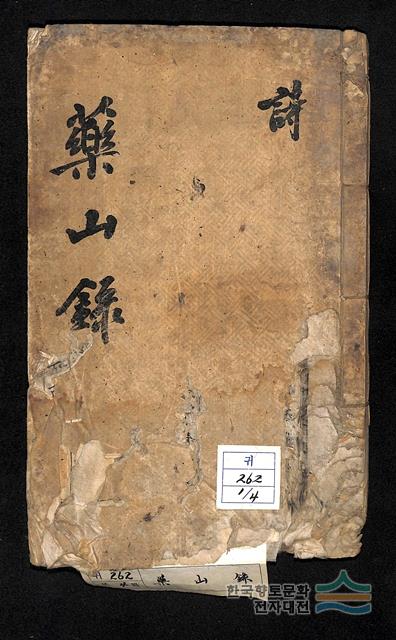 藥山錄
詩
귀
262
1/4
귀 262
藥山錄
한국향토문화
전자대전